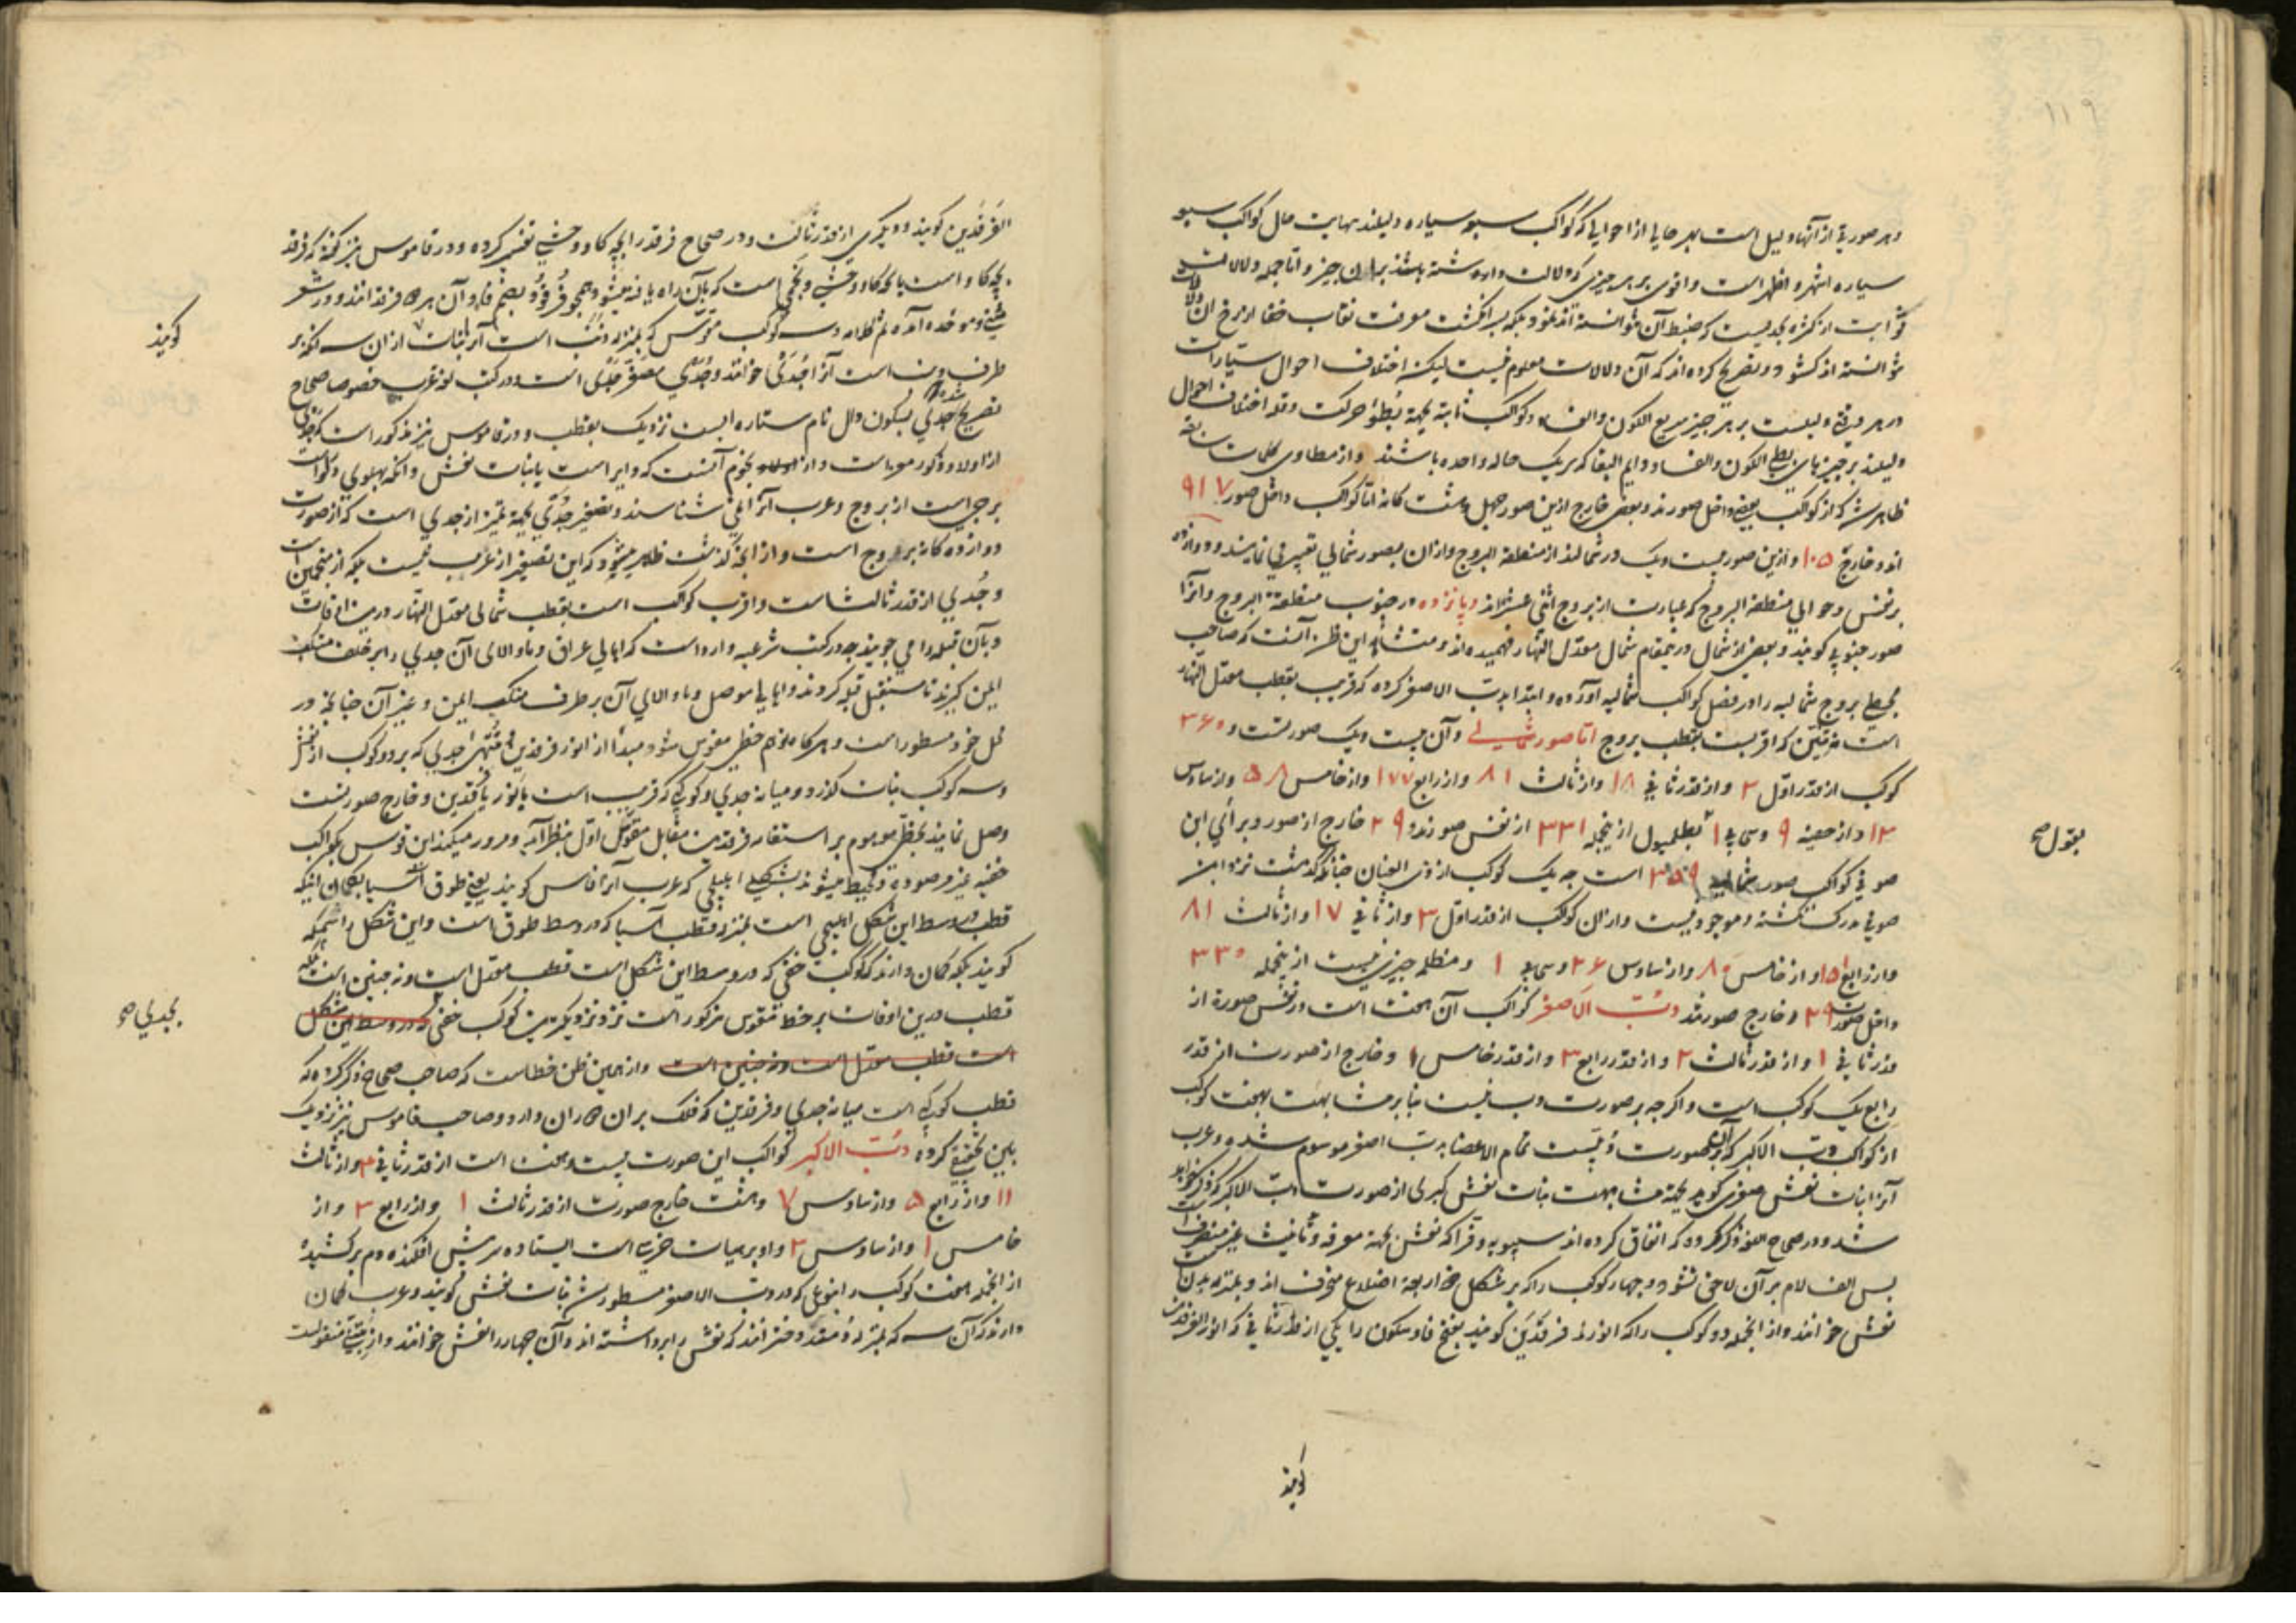 ١١٩
و هر صورتی از آنها دلیل است بهر حالی از احوالی که کواکب سبعه سیاره دلیلند نهایت حال کواکب سبعه
سیاره اشهر و اظهر است و اقوی بر هر چیزی که دلالت داشته باشند بر آن چیز و اما جمله دلالات
ثوابت از کثرة بحدیست که ضبط آن نتوانسته اند نمود بلکه بسر انگشت معرفت نقاب خفا از رخ آن دلالات
نتوانسته اند کشود و تصریح کرده اند که آن دلالات معلوم نیست لیکن اختلاف احوال سیارات
در هر دقیقه دلیلست بر هر چیز سریع الکون والفساد و کواکب ثابته بجهة بطؤ حرکت و قلة اختلاف احوال
دلیلند بر چیزهای بطئ الکون والفساد و دایم البقا که بر یک حاله واحده باشند و از مطاوی کلمات سابقه
ظاهر شد که از کواکب بعضی داخل صورند و بعضی خارج ازین صور چهل و هشت کانه اما کواکب داخل صور ٩١٧
اند و خارج ١٠٥ و ازین صور بیست و یک در شمالند از منطقة البروج و از آن بصور شمالی تعبیر می نمایند و دوازده
بر نفس و حوالی منطقة البروج که عبارت از بروج اثنی عشر اند و پانزده در جنوب منطقة البروج و آنرا
صور جنوبی کویند و بعضی از شمال درین مقام شمال معدل النهار فهمیده اند و منشأ این ظن آنست که صاحب
مجسطی بروج شمالیه را در فصل کواکب شمالیه آورده و ابتدا بدب الاصغر کرده که قریب بقطب معدل النهار
است نه تنین که اقربست بقطب بروج اما صور شمالی و آن بیست و یک صورتست و ٣٦٠
کوکب از قدر اول ٣ و از قدر ثانی ١٨ و از ثالث ٨١ و از رابع ١٧٧ و از خامس ٥٨ و از سادس
١٣ و از خفیه ٩ و سحابی ١ بقول بطلمیوس از ینجمله ٣٣١ از نفس صورند و ٢٩ خارج از صور و برأی ابن
صوفی کواکب صور شمالیه ٣٥٩ است چه یک کوکب از ذی العنان چنانکه گذشت نزد ابن
صوفی مدرک نکشته و موجود نیست و ازان کوکب از قدر اول ٣ و از ثانی ١٧ و از ثالث ٨١
و از رابع و از خامس و از سادس و سحابی ١ و مظلم چیزی نیست از ینجمله ٣٣٠
داخل صورت ٢٩ و خارج صورند دب الاصغر کواکب آن هفت است در نفس صورة از
قدر ثانی ١ و از قدر ثالث ٢ و از قدر رابع ٣ و از قدر خامس ١ و خارج از صورت از قدر
رابع یک کوکب است و اکرچه بر صورت دب نیست بنابر مشابهت بهفت کوکب
از کواکب دب الاکبر که آن بر صورت دبیست تمام الاعضا بدب اصغر موسوم شده و عرب
آنرا بنات نعش صغری کوید بجهة مشابهت بنات نعش کبری از صورت دب الاکبر که ذکر خواهد
شد و در صحاح اللغه ذکر کرده که اتفاق کرده اند سیبویه و فرا که نعش بجهة معرفه و تانیث غیر منصرف است
پس الف لام بر آن لاحق نشود و چهار کوکب را که بر شکل ذو اربعة اضلاع منحرف اند و بمنزله بدن
نعش خوانند و از انجمله دو کوکب را که انورند فرقدین کویند بفتح فا و سکون را یکی از قدر ثانی که انور الفرقدین
کویند
بقول صح
الفرقدین کویند و دیکری از قدر ثالث و در صحاح فرقد را بچه کاو وحشی تفسیر کرده و در قاموس نیز کفته که فرقد
بچه کاو است یا بچه کاو وحشی و نجمی است که بآن راه یافته میشود همچو فرقود بضم فا و آن هر دو فرقد انند و در شعر
مثنی و موحده آمده و سه کوکب مقوس که بمنزله ذنب است آنرا بنات ازان سه آنکه بر
طرف ذنب است آنرا جُدَیّ خوانند و جُدَیّ مصغر جَدی است و در کتب لغه عرب خصوصا صحاح
تصریح شده که جدی بسکون دال نام ستاره ایست نزدیک بقطب و در قاموس نیز مذکور است که جدی
از اولاد ذکور معز است و از نجوم آنست که دایر است با بنات نعش و آنکه پهلوی دلو است
برجیست از بروج و عرب آنرا نمی شناسند و تصغیر جدی بجهة تمیز از جدی است که از صورت
دوازده کانه بروج است و از آنچه گذشت ظاهر میشود که این تصغیر از عرب نیست بلکه از منجمین است
و جدی از قدر ثالث است و اقرب کواکب است بقطب شمالی معدل النهار درین اوقات
و بآن قبله را می جویند چه در کتب شرعیه وارد است که اهالی عراق و ما والاها آن جدی را بر خلف منکب
ایمن کیرند تا مستقبل قبله کردند و اهالی موصل و ما والای آن بر طرف منکب ایمن و غیر آن چنانچه در
محل خود مسطور است و هرکاه توهم خطی مقوس شود مبدأ از انور فرقدین و منتهی جدی که بر دو کوکب از نعش
و سه کوکب بنات گذرد و میانه جدی و کوکبی که قریب است بانور فرقدین و خارج صورتست
وصل نمایند بخطی موهوم بر استقامه فرقدین مقابل مقوس اول بنظر آید و مرور میکند این قوس بکواکب
خفیه غیر مرصوده و محیط میشوند بشکلی اهلیلجی که عرب آنرا فاس کویند یعنی طوق آسیا بکمان اینکه
قطب در وسط این شکل اهلیلجی است بمنزله قطب آسیا که در وسط طوق است و این شکل را سمکه
کویند بلکه کمان دارند که کوکب خفی که در وسط این شکل است قطب معدل است و نه چنین است بلکه
قطب درین اوقات بر خط مقوس مذکور است نزد نزدیکترین کوکب خفی که در وسط این شکل
است قطب معدل است و نه چنین است و از همین ظن خطاست که صاحب صحاح ذکر کرده که
قطب کوکبی است میانه جدی و فرقدین که فلک بر آن دوران دارد و صاحب قاموس نیز نزدیک
باین تحقیق کرده دب الاکبر کواکب این صورت بیست و هفت است از قدر ثانی و از ثالث
١١ و از رابع ٥ و از سادس ٧ و هشت خارج صورت از قدر ثالث ١ و از رابع ٣ و از
خامس ١ و از سادس ٣ و او بر هیأت خرسی است ایستاده سر پیش افکنده دم بر کشیده
از انجمله هفت کوکب را بنوعی که در دب الاصغر مسطور شد بنات نعش کویند و عرب کمان
دارند که آن سه که بمنزله دم است دختر انند که نعش را برداشته اند و آن چهار را نعش خوانند و از لیث منقولست
کویند
بجدی صح